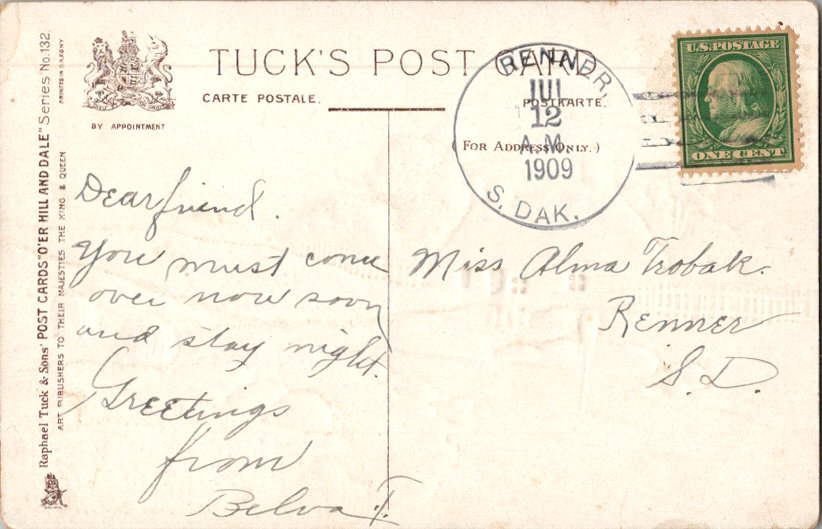 TUCK'S POST CARD
CARTE POSTALE.
POSTKARTE.
(FOR ADDRESS ONLY.)
BY APPOINTMENT
Raphael Tuck & Sons' "POST CARDS "O'ER HILL AND DALE" Series No. 132.
ART PUBLISHERS TO THEIR MAJESTIES THE KING & QUEEN
PRINTED IN SAXONY
RENNER,
JUL
12
A.M.
1909
S. DAK.
U.S. POSTAGE
ONE CENT
Dear friend.
You must come
over now soon
and stay night.
Greetings
from
Belva T.
Miss Alma Trobak.
Renner
S.D.